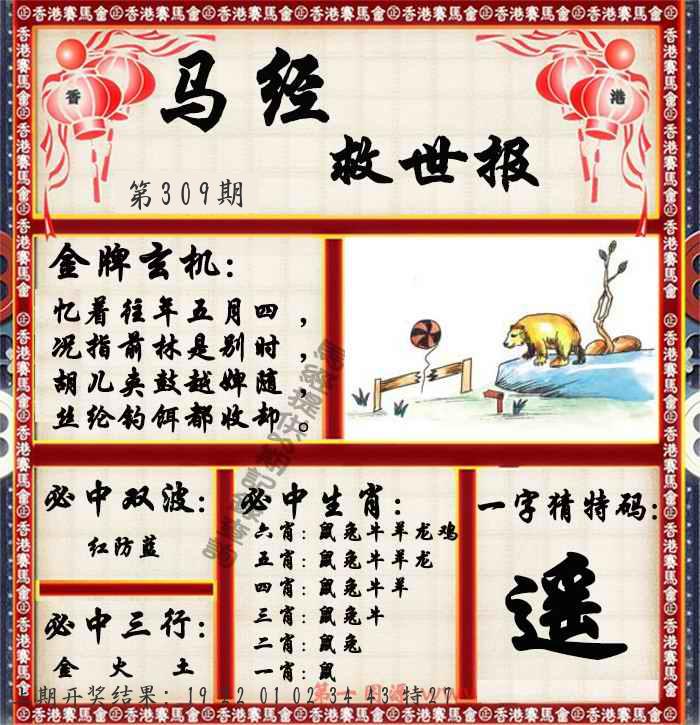 香港賽馬會
香
港
马经
救世报
第309期
金牌玄机:
忆着往年五月四，
况指前林是别时，
胡儿夹鼓越婢随，
丝纶钓饵都收却。
必中双波:
红防蓝
必中三行:
金 火 土
必中生肖:
六肖: 鼠兔牛羊龙鸡
五肖: 鼠兔牛羊龙
四肖: 鼠兔牛羊
三肖: 鼠兔牛
二肖: 鼠兔
一肖: 鼠
一字猜特码:
遥
期开奖结果: 19 2 01 02 34 43 特27